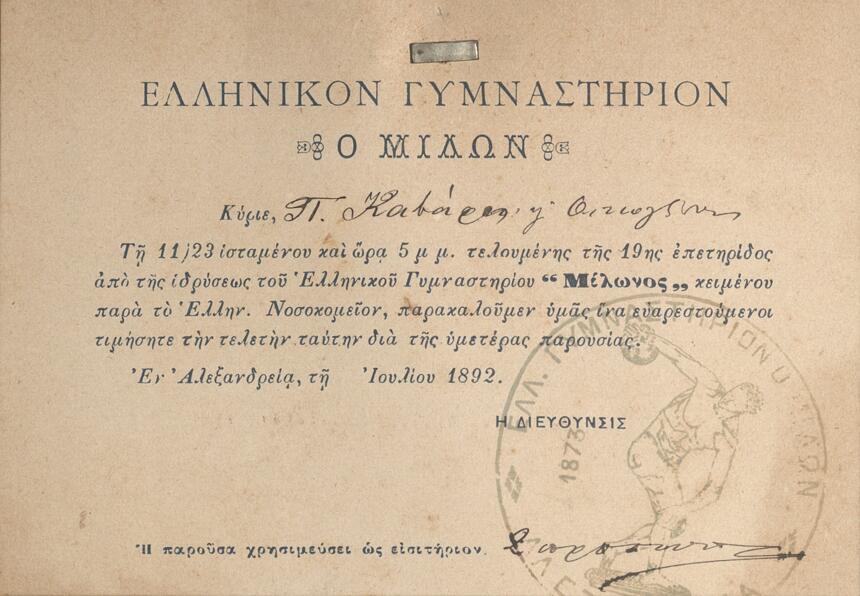 ΕΛΛΗΝΙΚΟΝ ΓΥΜΝΑΣΤΗΡΙΟΝ
Ο ΜΙΛΩΝ
Κύριε, Π. Καβάφην
Τῇ 11/23 ἱσταμένου καὶ ὥρᾳ 5 μ μ. τελουμένης τῆς 19ης ἐπετηρίδος
ἀπὸ τῆς ἱδρύσεως τοῦ Ἑλληνικοῦ Γυμναστηρίου “Μίλωνος„ κειμένου
παρὰ τὸ Ἑλλην. Νοσοκομεῖον, παρακαλοῦμεν ὑμᾶς ἵνα εὐαρεστούμενοι
τιμήσητε τὴν τελετὴν ταύτην διὰ τῆς ὑμετέρας παρουσίας.
Ἐν Ἀλεξανδρείᾳ, τῇ Ἰουλίου 1892.
Η ΔΙΕΥΘΥΝΣΙΣ
ΕΛΛ. ΓΥΜΝΑΣΤΗΡΙΟΝ Ο ΜΙΛΩΝ
1873
Ἡ παροῦσα χρησιμεύσει ὡς εἰσιτήριον.